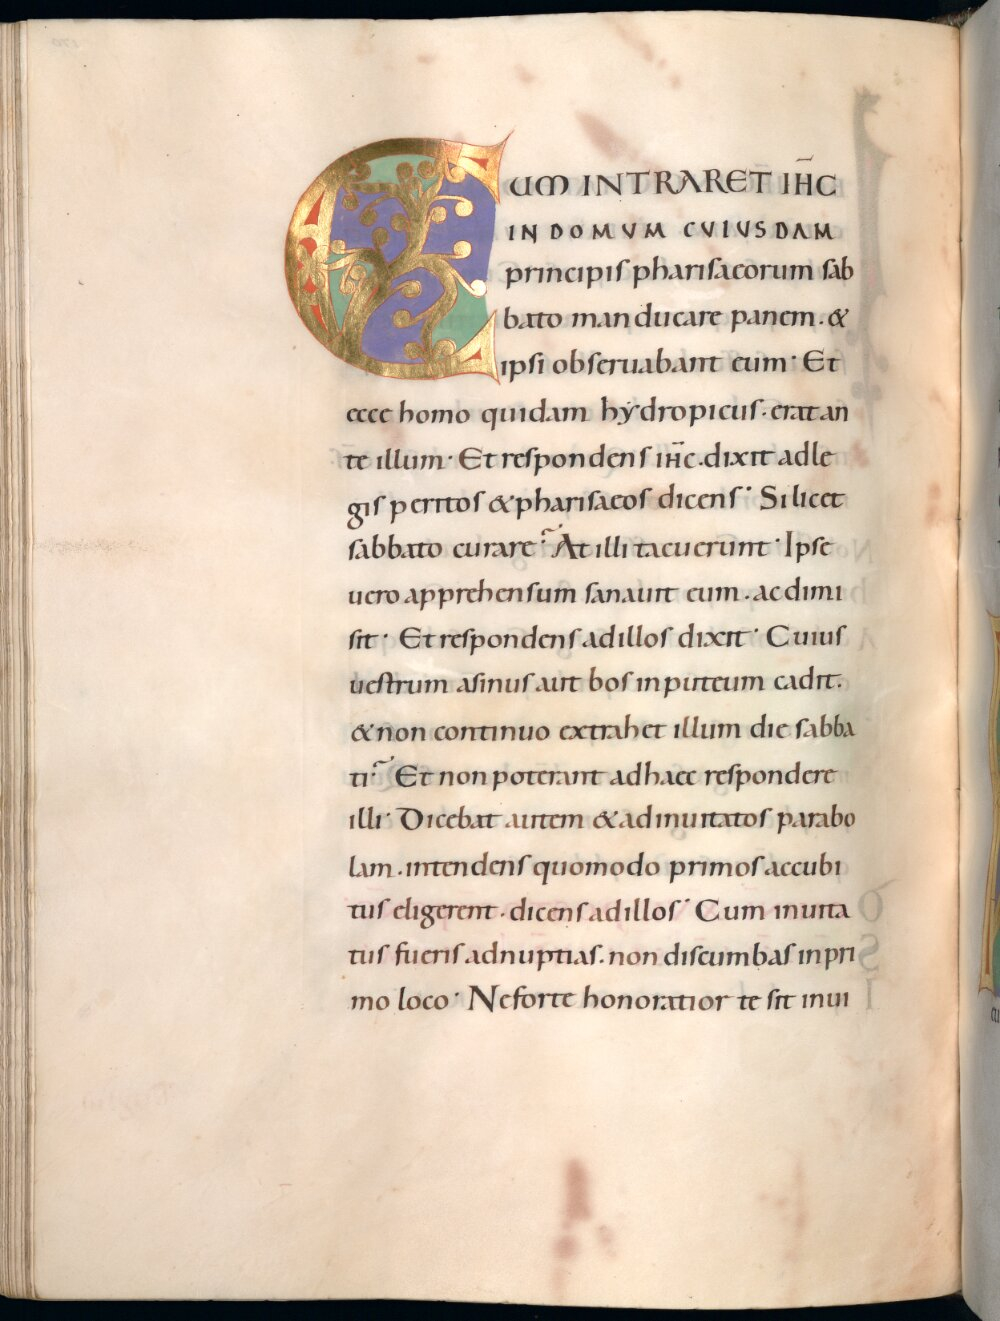 CUM INTRARET IH̄C
IN DOMUM CUIUSDAM
principis pharisaeorum sab
bato manducare panem. &
ipsi observabant eum · Et
ecce homo quidam hẏdropicus · erat an
te illum · Et respondens ih̄c . dixit ad le
gis peritos & pharisaeos dicens · Si licet
sabbato curare? At illi tacuerunt · Ipse
uero apprehensum sanauit eum . ac dimi
sit · Et respondens ad illos dixit · Cuius
uestrum asinus aut bos in puteum cadit.
& non continuo extrahet illum die sabba
ti? Et non poterant ad haec respondere
illi · Dicebat autem & ad inuitatos parabo
lam . intendens quomodo primos accubi
tus eligerent . dicens ad illos · Cum inuita
tus fueris ad nuptias . non discumbas in pri
mo loco · Ne forte honoratior te sit inui